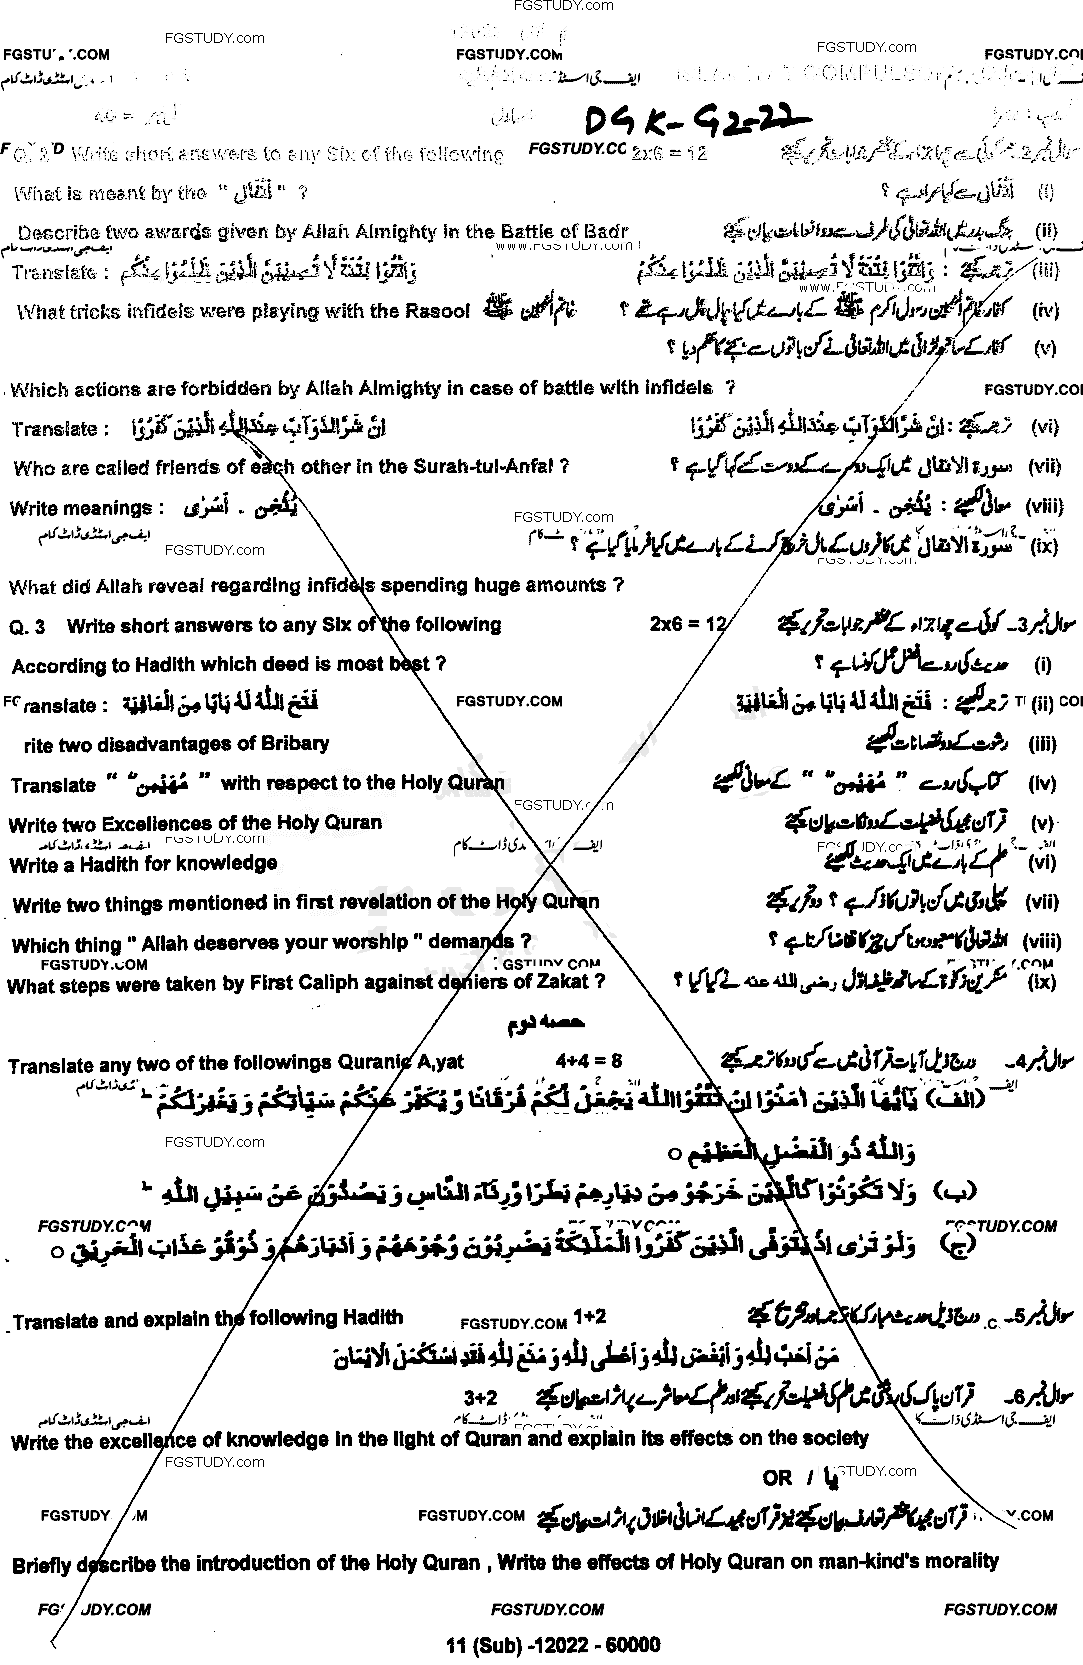 FGSTUDY.com
FGSTUDY.com
FGSTUDY.com
FGSTUDY.COM
ایف جی اسٹڈی ڈاٹ کام
DGK-G2-22
Q. 2 Write short answers to any Six of the following FGSTUDY.CO 2x6 = 12 سوال نمبر 2۔ کوئی سے چھ اجزاء کے مختصر جوابات تحریر کیجئے
What is meant by the " أنفال " ? أنفال سے کیا مراد ہے ؟ (i)
Describe two awards given by Allah Almighty in the Battle of Badr جنگ بدر میں اللہ تعالیٰ کی طرف سے دو انعامات بیان کیجئے (ii)
www.FGSTUDY.com
Translate : وَاتَّقُوا فِتْنَةً لَّا تُصِيبَنَّ الَّذِينَ ظَلَمُوا مِنْكُمْ ترجمہ کیجئے : وَاتَّقُوا فِتْنَةً لَّا تُصِيبَنَّ الَّذِينَ ظَلَمُوا مِنْكُمْ (iii)
www.FGSTUDY.com
What tricks infidels were playing with the Rasool ﷺ خاتم النبیین کفار خاتم النبیین رسول اکرم ﷺ کے بارے میں کیا چال چل رہے تھے ؟ (iv)
کفار کے ساتھ لڑائی میں اللہ تعالیٰ نے کن باتوں سے بچنے کا حکم دیا ؟ (v)
Which actions are forbidden by Allah Almighty in case of battle with infidels ? FGSTUDY.CO
Translate : اِنَّ شَرَّ الدَّوَآبِّ عِنْدَ اللّٰهِ الَّذِيْنَ كَفَرُوْا ترجمہ کیجئے : اِنَّ شَرَّ الدَّوَآبِّ عِنْدَ اللّٰهِ الَّذِيْنَ كَفَرُوْا (vi)
Who are called friends of each other in the Surah-tul-Anfal ? سورة الانفال میں ایک دوسرے کے دوست کسے کہا گیا ہے ؟ (vii)
Write meanings : يُثْخِنَ ۔ أَسْرٰى معانی لکھیئے : يُثْخِنَ ۔ أَسْرٰى (viii)
FGSTUDY.com
سورة الانفال میں کافروں کے مال خرچ کرنے کے بارے میں کیا فرمایا گیا ہے ؟ (ix)
FGSTUDY.com
What did Allah reveal regarding infidels spending huge amounts ?
Q. 3 Write short answers to any Six of the following 2x6 = 12 سوال نمبر 3۔ کوئی سے چھ اجزاء کے مختصر جوابات تحریر کیجئے
According to Hadith which deed is most best ? حدیث کی رو سے افضل عمل کونسا ہے ؟ (i)
ranslate : فَتَحَ اللّٰهُ لَهُ بَابًا مِنَ الْعَافِيَةِ FGSTUDY.COM ترجمہ کیجئے : فَتَحَ اللّٰهُ لَهُ بَابًا مِنَ الْعَافِيَةِ (ii)
rite two disadvantages of Bribary رشوت کے دو نقصانات لکھیئے (iii)
Translate " مُهَيْمِن " with respect to the Holy Quran کتاب کی رو سے " مُهَيْمِن " کے معانی لکھیئے (iv)
FGSTUDY.com
Write two Excellences of the Holy Quran قرآن مجید کی فضیلت کے دو نکات بیان کیجئے (v)
FGSTUDY.com
Write a Hadith for knowledge علم کے بارے میں ایک حدیث لکھیئے (vi)
Write two things mentioned in first revelation of the Holy Quran پہلی وحی میں کن باتوں کا ذکر ہے ؟ دو تحریر کیجئے (vii)
Which thing " Allah deserves your worship " demands ? اللہ تعالیٰ کا معبود ہونا کس چیز کا تقاضا کرتا ہے ؟ (viii)
FGSTUDY.COM
What steps were taken by First Caliph against deniers of Zakat ? منکرین زکوٰة کے ساتھ خلیفہ اوّل رضی اللہ عنہ نے کیا کیا ؟ (ix)
حصہ دوم
Translate any two of the followings Quranic A,yat 4+4 = 8 سوال نمبر 4۔ درج ذیل آیات قرآنی میں سے کسی دو کا ترجمہ کیجئے
(الف) يٰٓاَيُّهَا الَّذِيْنَ اٰمَنُوْا اِنْ تَتَّقُوا اللّٰهَ يَجْعَلْ لَّكُمْ فُرْقَانًا وَّ يُكَفِّرْ عَنْكُمْ سَيِّاٰتِكُمْ وَ يَغْفِرْ لَكُمْ ؕ
FGSTUDY.com
وَاللّٰهُ ذُو الْفَضْلِ الْعَظِيْمِ ○
(ب) وَلَا تَكُوْنُوْا كَالَّذِيْنَ خَرَجُوْ مِنْ دِيَارِهِمْ بَطَرًا وَّرِئَآءَ النَّاسِ وَ يَصُدُّوْنَ عَنْ سَبِيْلِ اللّٰهِ ؕ
FGSTUDY.COM
(ج) وَلَوْ تَرٰى اِذْ يَتَوَفَّى الَّذِيْنَ كَفَرُوا الْمَلٰٓئِكَةُ يَضْرِبُوْنَ وُجُوْهَهُمْ وَ اَدْبَارَهُمْ وَ ذُوْقُوْ عَذَابَ الْحَرِيْقِ ○
Translate and explain the following Hadith FGSTUDY.COM 1+2 سوال نمبر 5۔ درج ذیل حدیث مبارکہ کا ترجمہ اور تشریح کیجئے
مَنْ اَحَبَّ لِلّٰهِ وَ اَبْغَضَ لِلّٰهِ وَ اَعْطٰى لِلّٰهِ وَ مَنَعَ لِلّٰهِ فَقَدِ اسْتَكْمَلَ الْاِيْمَانَ
3+2 سوال نمبر 6۔ قرآن پاک کی روشنی میں علم کی فضیلت تحریر کیجئے اور علم کے معاشرے پر اثرات بیان کیجئے
ایف جی اسٹڈی ڈاٹ کام
Write the excellence of knowledge in the light of Quran and explain its effects on the society
FGSTUDY.com
OR / یا
FGSTUDY FGSTUDY.COM قرآن مجید کا مختصر تعارف بیان کیجئے نیز قرآن مجید کے انسانی اخلاق پر اثرات بیان کیجئے
Briefly describe the introduction of the Holy Quran , Write the effects of Holy Quran on man-kind's morality
FGSTUDY.COM FGSTUDY.COM
11 (Sub) -12022 - 60000